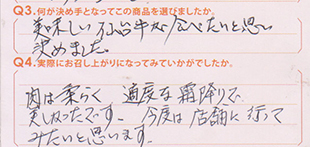 Q3.何が決め手となってこの商品を選びましたか。
美味しい仙台牛が食べたいと思い
決めました。
Q4.実際にお召し上がりになってみていかがでしたか。
肉は柔らく 適度な霜降りで
美しかったです。 今度は店舗に行って
みたいと思います。